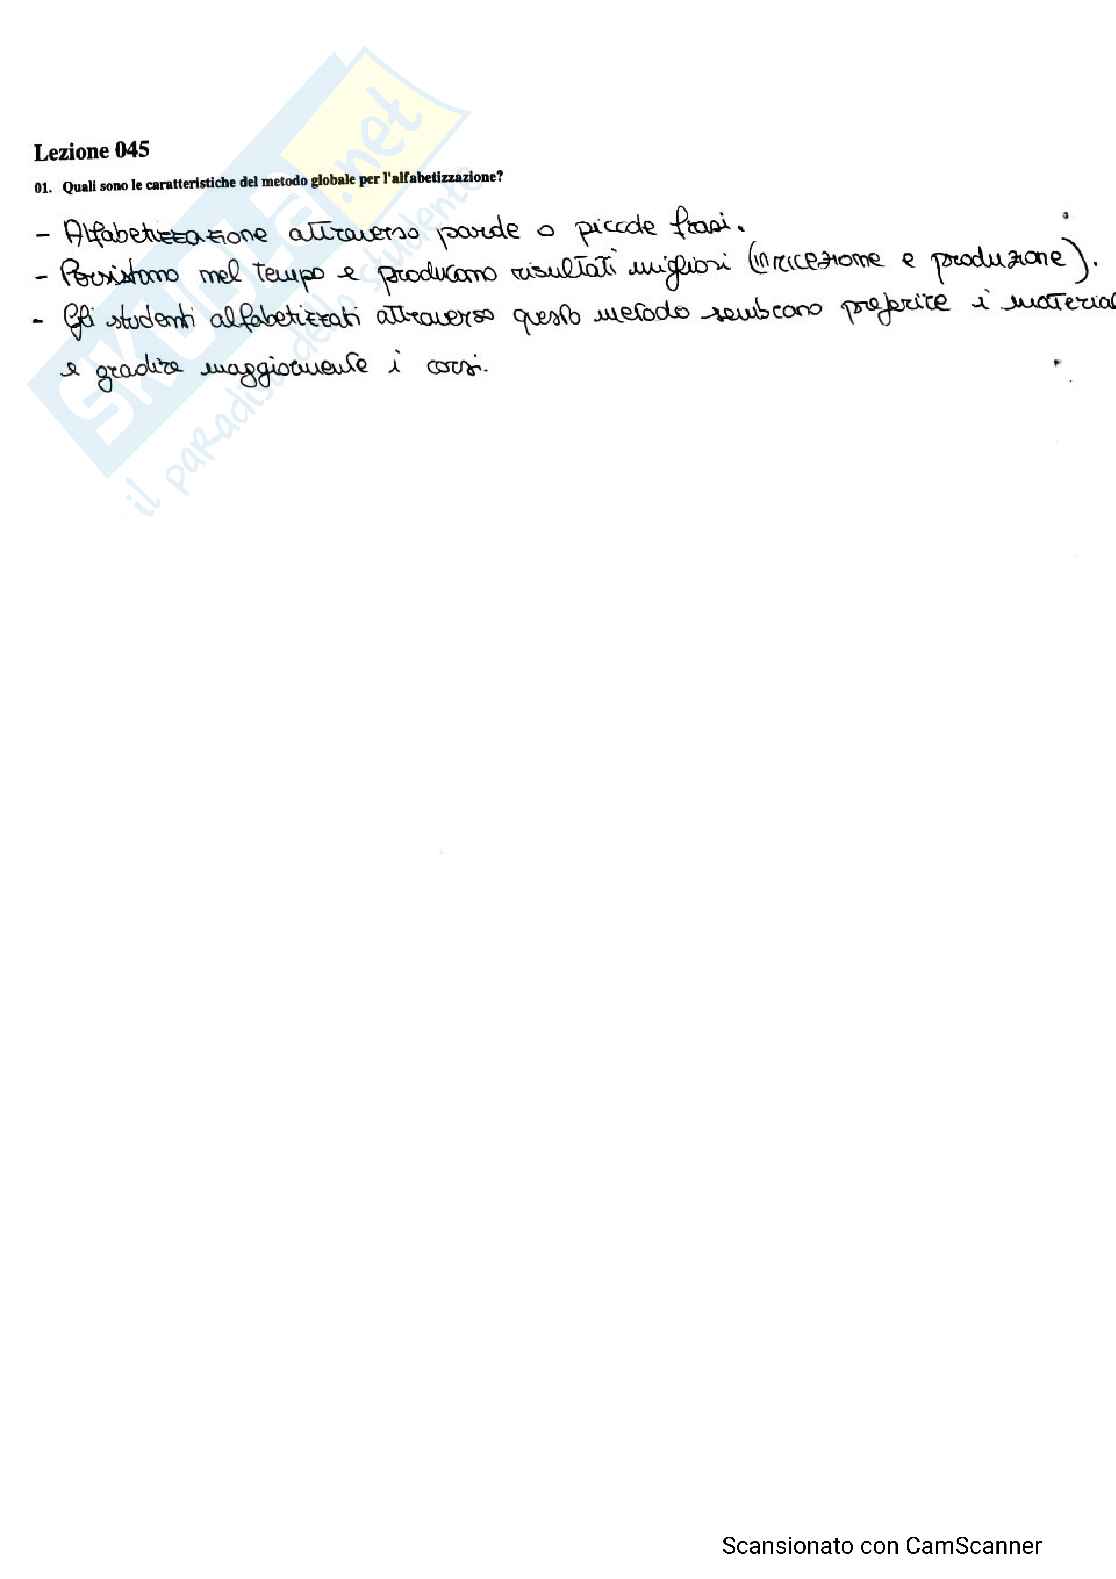 Lezione 045
01. Quali sono le caratteristiche del metodo globale per l'alfabetizzazione?
- Alfabetizzazione attraverso parole o piccole frasi.
- Persistono nel tempo e producono risultati migliori (in ricezione e produzione).
- Gli studenti alfabetizzati attraverso questo metodo sembrano preferire i material
e gradire maggiormente i corsi.
SKUOLA.net
il paradiso dello studente
Scansionato con CamScanner